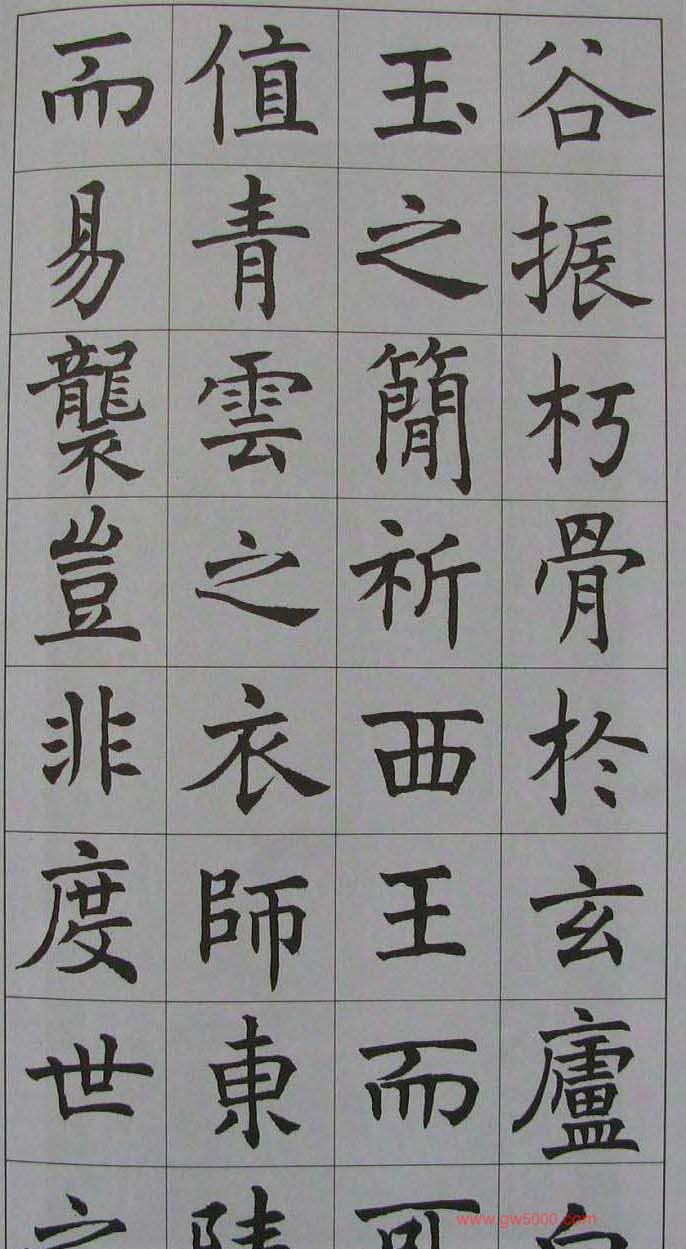 谷振朽骨於玄廬
玉之簡祈西王而可
值青雲之衣師東陵
而易襲豈非度世之
www.gw5000.com